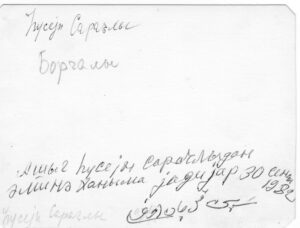 Һүсејн Сарачлы
Борчалы
Ашыг һүсејн сарачлыдан
Әминә ханыма јадијар 30 сент
1982
Һүсејн Сарачлы